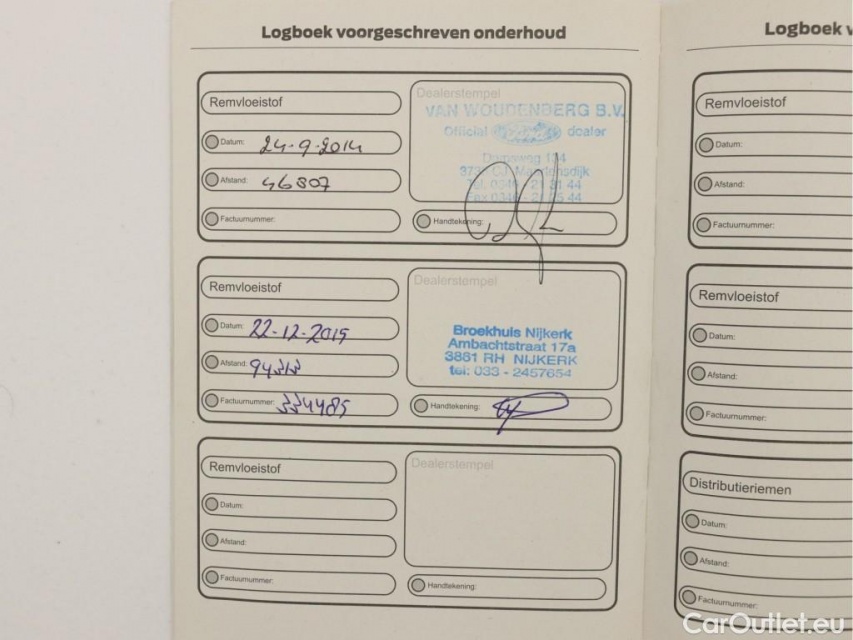 Logboek voorgeschreven onderhoud
Remvloeistof
Datum: 24-9-2014
Afstand: 46807
Factuurnummer:
Dealerstempel
VAN WOUDENBERG B.V.
Official dealer
Dorpsweg 134
CJ Maartensdijk
Handtekening:
Remvloeistof
Datum: 22-12-2015
Afstand:
Factuurnummer: 334485
Dealerstempel
Broekhuis Nijkerk
Ambachtstraat 17a
3881 RH NIJKERK
tel: 033 - 2457654
Handtekening:
Remvloeistof
Datum:
Afstand:
Factuurnummer:
Dealerstempel
Handtekening:
Logboek v
Remvloeistof
Datum:
Afstand:
Factuurnummer:
Remvloeistof
Datum:
Afstand:
Factuurnummer:
Distributieriemen
Datum:
Afstand:
Factuurnummer:
CarOutlet.eu